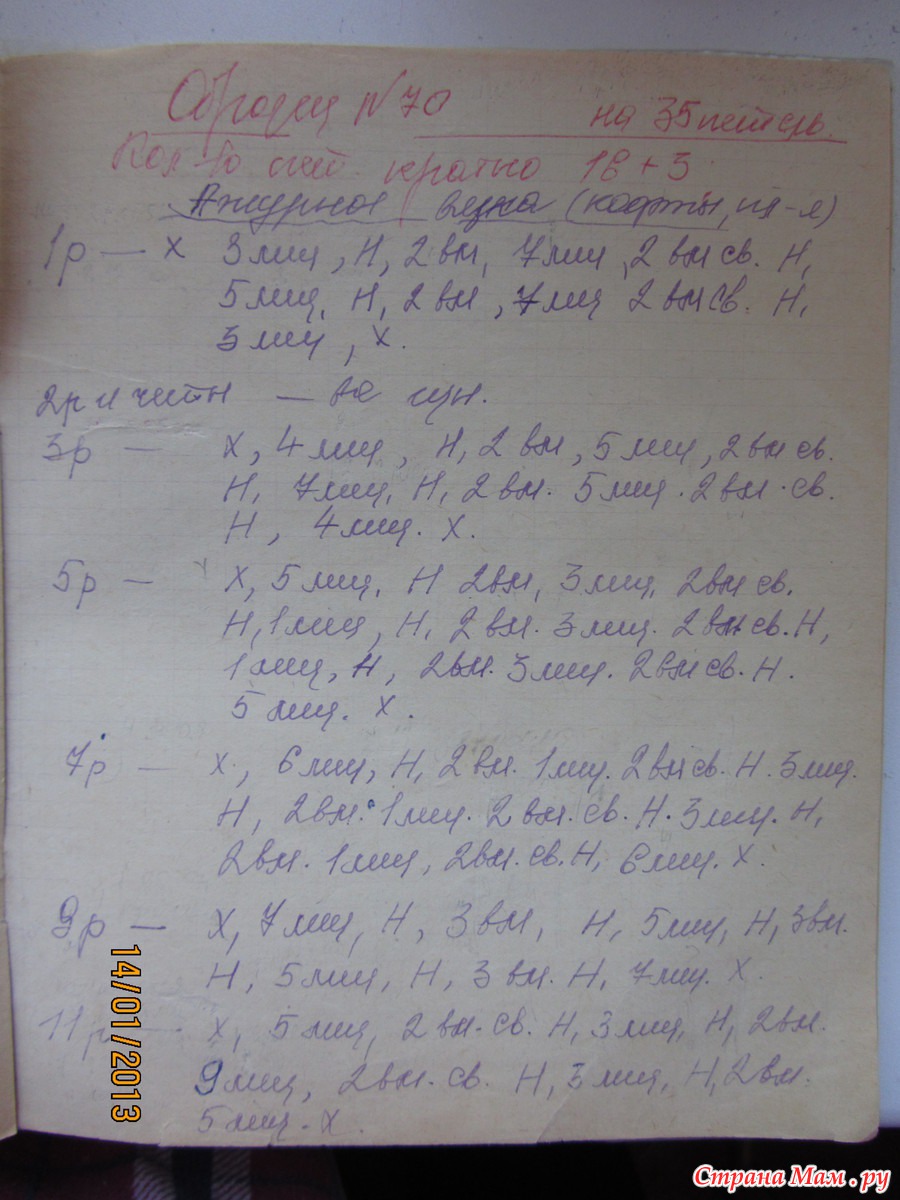 Образец N 70 на 35 петель.
Кол-во пет кратно 16 + 3.
Ажурная вязка (кофты, пл-я)
1р — X 3 лиц, Н, 2 вм, 7 лиц, 2 вм св. Н,
5 лиц, Н, 2 вм, 7 лиц 2 вм св. Н,
3 лиц, X.
2р и четн — все изн.
3р — X, 4 лиц, Н, 2 вм, 5 лиц, 2 вм св.
Н, 7 лиц, Н, 2 вм. 5 лиц. 2 вм. св.
Н, 4 лиц. X.
5р — X, 5 лиц, Н 2 вм, 3 лиц, 2 вм св.
Н, 1 лиц, Н, 2 вм. 3 лиц. 2 вм. св. Н,
1 лиц, Н, 2 вм. 3 лиц. 2 вм св. Н.
5 лиц. X.
7р — X, 6 лиц, Н, 2 вм. 1 лиц. 2 вм св. Н. 3 лиц.
Н, 2 вм. 1 лиц. 2 вм. св. Н. 3 лиц. Н,
2 вм. 1 лиц, 2 вм. св. Н, 6 лиц. X.
9р — X, 7 лиц, Н, 3 вм, Н, 5 лиц, Н, 3 вм.
Н, 5 лиц, Н, 3 вм. Н, 7 лиц. X.
11р — X, 5 лиц, 2 вм. св. Н, 3 лиц, Н, 2 вм.
9 лиц, 2 вм. св. Н, 3 лиц, Н, 2 вм.
5 лиц. X.
14/01/2013
Страна Мам.ру